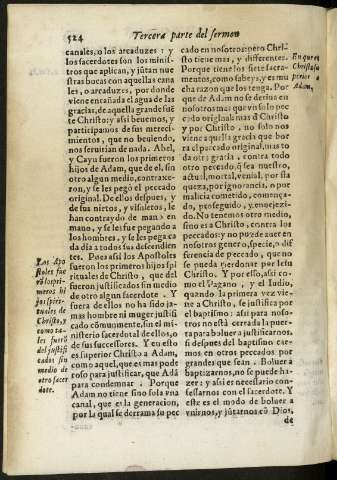 524
Tercera parte del sermon
canales, o los arcaduzes: y
los sacerdotes son los minis-
tros que aplican, y jũtan nue
stras bocas con aquellas cana
les, o arcaduzes, por donde
viene encañada el agua de las
gracias, de aquella grande fuẽ
te Christo: y assi beuemos, y
participamos de sus mereci-
mientos, que no beuiendo,
nos seruirian de nada. Abel,
y Cayn fueron los primeros
hijos de Adam, que de el, sin
otro algun medio, contraxe-
ron, y se les pegò el peccado
original. De ellos despues, y
de sus nietos, y visnietos, le
han contraydo de mano en
mano, y se les fue pegando a
los hombres, y se les pega ca
da dia a todos sus descendien
tes. Pues assi los Apostoles
fueron los primeros hijos spi
rituales de Christo, que del
fueron justificados sin medio
de otro algun sacerdote. Y
fuera de ellos no ha sido ja-
mas hombre ni muger justifi
cado cõmunmente, sin el mi-
nisterio sacerdotal de ellos, o
de sus successores. Y en esto
es superior Christo a Adam,
como aquel, que es mas pode
roso para justificar, que Adã
para condemnar. Porque
Adam no tiene sino sola vna
canal, que es la generacion,
por la qual se derrama su pec
Los Apo
stoles fue
rõ los pri-
meros hi
jos spiri-
tuales de
Christo, y
como ta-
les fuerõ
del justifi
cados sin
medio de
otro sacer
dote.
cado en nosotros: pero Chri-
sto tiene mas, y differentes.
Porque tiene los siete sacra-
mentos, como sabeys, y es mu
cha razon que los tenga. Por
que de Adam no se deriua en
nosotros mas que vn solo pec
cado original: mas d Christo
y por Christo, no solo nos
viene aquella gracia que bor
ra el peccado original, mas to
da otra gracia, contra todo
otro peccado, q̃ sea nuestro,
actual, mortal, venial, por fla
queza, por ignorancia, o por
malicia cometido, comença-
do, proseguido, y enuejezi-
do. No tenemos otro medio,
sino es a Christo, contra los
peccados: y no puede auer en
nosotros genero, specie, o dif
ferencia de peccado, que no
se pueda perdonar por Iesu
Christo. Y por esso, assi co-
mo el Pagano, y el Iudio,
quando la primera vez vie-
ne a Christo, se justifica por
el baptismo: assi para noso-
tros no està cerrada la puer-
ra para boluer a justificarnos,
si despues del baptismo cae-
mos en otros peccados por
grandes que sean. Boluer a
baptizarnos, no se puede ha-
zer: y assi es necessario con-
fessarnos con el sacerdote. Y
este es el modo de boluer a
vnirnos, y jũtarnos cõ Dios,
En que es
Christo su
perior a
Adam.
de